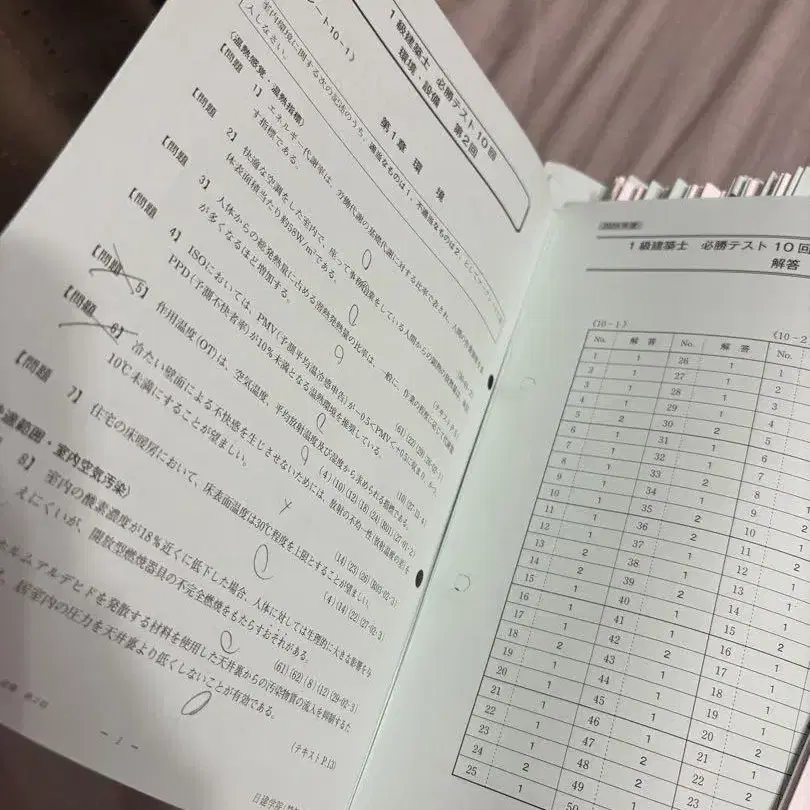 1級建築士 必勝テスト10回
環境・設備 第2回
ート10-1》
第1章 環 境
室内環境に関する次の記述のうち、適当なものは1、不適当なものは2、とし
入しなさい。
〈温熱感覚・温熱指標〉
【問題 1】 エネルギー代謝率は、労働代謝の基礎代謝に対する比率で表され、人間の
す指標である。
【問題 2】 快適な空調をした室内で、座って事務作業をしている人間からの
体表面積当たり約58W/m²である。
【問題 3】 人体からの総発熱量に占める潜熱発熱量の比率は、一般に、作業の程度に応じて
が多くなるほど増加する。
【問題 4】 ISOにおいては、PMV(予測平均温冷感申告)が-0.5<PMV<+0.5に収まり、かつ
PPD(予測不快者率)が10%未満となる温熱環境を推奨している。
【問題 5】 作用温度(OT)は、空気温度、平均放射温度及び湿度から求められる指標である。
【問題 6】 冷たい壁面による不快感を生じさせないためには、放射の不均一性(放射温度の差)を
10℃未満にすることが望ましい。
【問題 7】 住宅の床暖房において、床表面温度は30℃程度を上限とすることが望ましい。
範囲・室内空気汚染〉
8】 室内の酸素濃度が18%近くに低下した場合、人体に対しては生理的に大きな影響を与
えにくいが、開放型燃焼器具の不完全燃焼をもたらすおそれがある。
ルムアルデヒドを発散する材料を使用した天井裏からの汚染物質の流入を抑制するた
、居室内の圧力を天井裏より低くしないことが有効である。
(テキストP.13)
― 1 ―
日建学院
2024年度
1級建築士 必勝テスト10回
解答
《10-1》
No. 解 答 No. 解 答
1 1 26 1
2 1 27 1
3 1 28 1
4 1 29 1
5 2 30 2
6 1 31 1
7 1 32 1
8 1 33 2
9 1 34 1
10 1 35 2
11 1 36 2
12 1 37 1
13 2 38 1
14 2 39 2
15 1 40 1
16 1 41 1
17 1 42 2
18 2 43 2
19 2 44 1
20 1 45 1
21 1 46 1
22 1 47 2
23 1 48 2
24 2 49 2
25 1 50
《10-2
No.
1
2
3
4
5
6
7
8 1
9 1
10 1
11 2
12 2
13 2
14 2
15 2
16 1
17 1
18 1
19 2
20 2
21 2
22 1
23